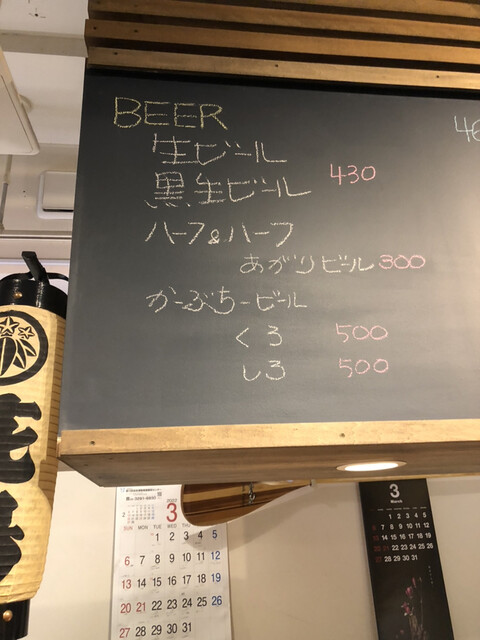 BEER
生ビール
黒生ビール 430
ハーフ&ハーフ
あがりビール 300
かーぶちービール
くろ 500
しろ 500
46
3
SUN MON TUE WED THU
1 2 3 4 5
6 7 8 9 10 11 12
13 14 15 16 17 18 19
20 21 22 23 24 25 26
27 28 29 30 31
3
March
1 2 3 4 5
7 8 9 10 11 12
14 15 16 17 18 19
21 22 23 24 25 26
28 29 30 31